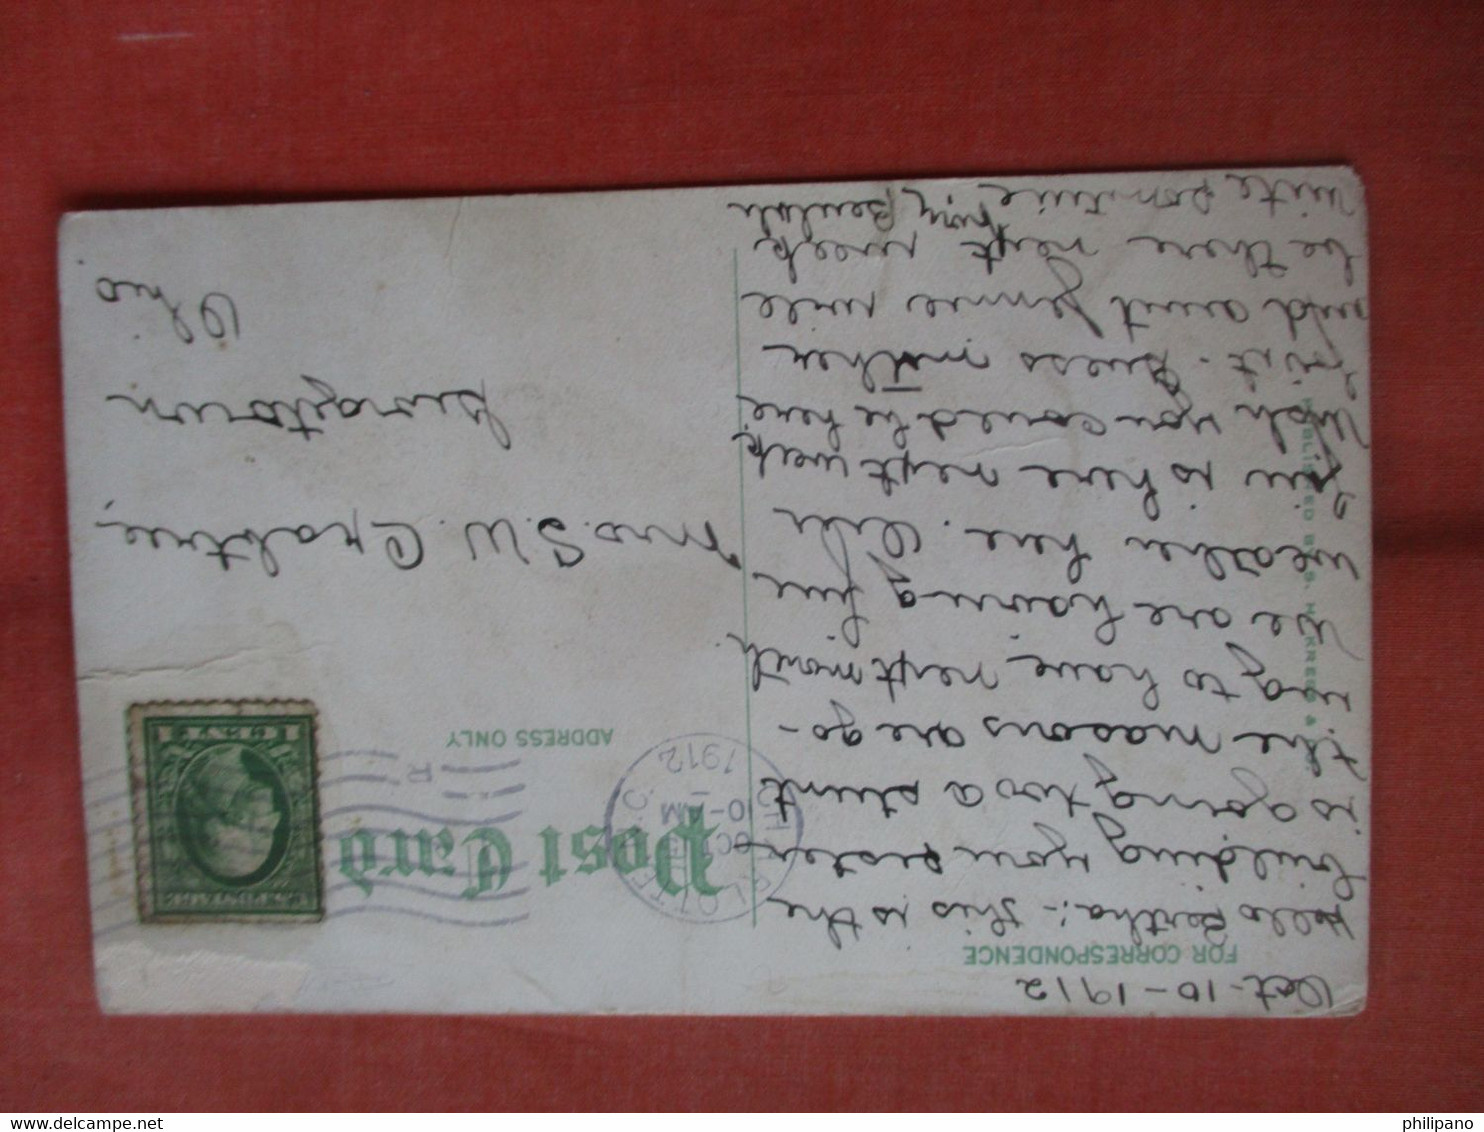 Oct-10-1912
FOR CORRESPONDENCE
Hello Bertha:- This is the
building your sister
is going two a stunt
the masons are go-
ing to have next month.
We are having fine
weather here.
is here next week
Wish you could be here
Guess mother
and aunt Jennie will
be there next week
write sometime
Beulah
Post Card
ADDRESS ONLY
CHARLOTTE
OCT
10-AM
1912
U.S. POSTAGE
1 CENT 1
Mrs. S. W. Crabtree,
Georgetown
Ohio
PUBLISHED BY S. H. KRESS & CO.
philipano